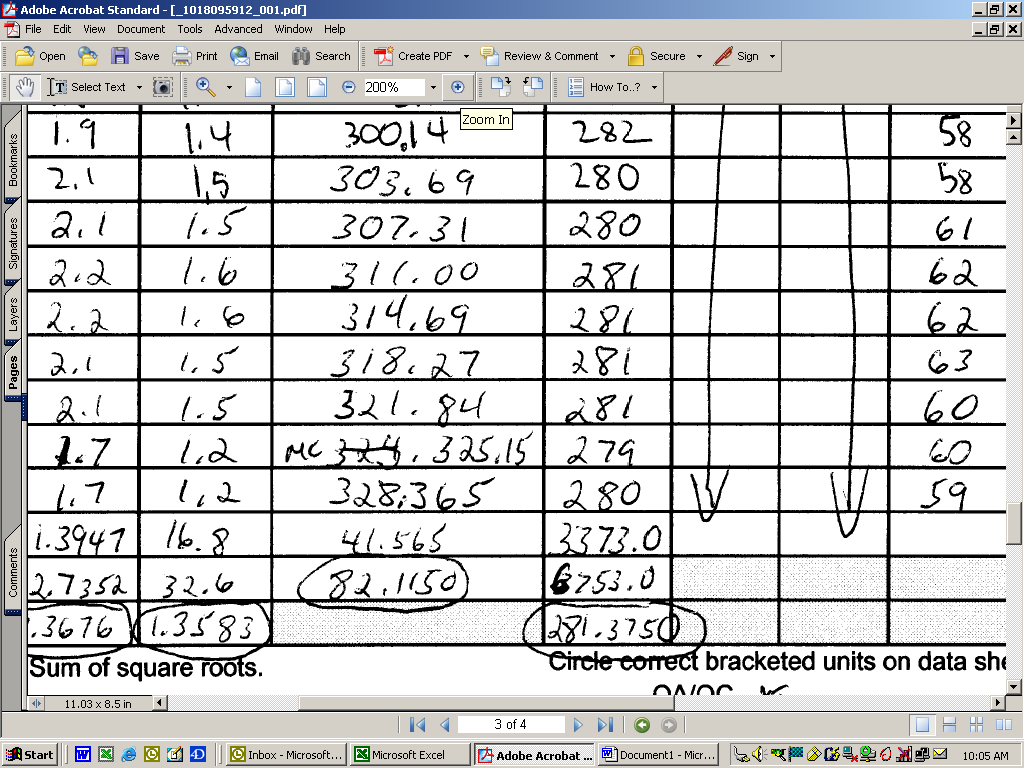 Adobe Acrobat Standard - [_1018095912_001.pdf]
File Edit View Document Tools Advanced Window Help
Open Save Print Email Search Create PDF Review & Comment Secure Sign
Select Text 200% How To..?
Zoom In
Bookmarks
Signatures
Layers
Pages
Comments
1.9 1.4 300.14 282 58
2.1 1.5 303.69 280 58
2.1 1.5 307.31 280 61
2.2 1.6 311.00 281 62
2.2 1.6 314.69 281 62
2.1 1.5 318.27 281 63
2.1 1.5 321.84 281 60
1.7 1.2 MC 324. 325.15 279 60
1.7 1.2 328.365 280 59
1.3947 16.8 41.565 3373.0
2.7352 32.6 82.1150 6753.0
.3676 1.3583 281.3750
Sum of square roots. Circle correct bracketed units on data she
QA/QC
11.03 x 8.5 in
3 of 4
Start Inbox - Microsoft... Microsoft Excel Adobe Acrobat ... Document1 - Micr... 10:05 AM